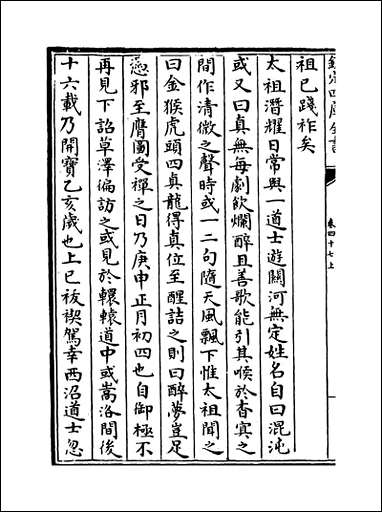 欽定四庫全書
卷四十七上
祖已踐祚矣
太祖潛耀日常與一道士遊關河無定姓名自曰混沌
或又曰真無每劇飲爛醉且善歌能引其喉於杳冥之
間作清微之聲時或一二句隨天風飄下惟太祖聞之
曰金猴虎頭四真龍得真位至醒詰之則曰醉夢豈足
憑邪至膺圖受禪之日乃庚申正月初四也自御極不
再見下詔草澤徧訪之或見於轘轅道中或嵩洛間後
十六載乃開寶乙亥歲也上巳祓禊駕幸西沼道士忽